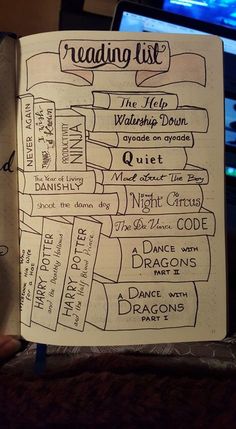 reading list
NEVER AGAIN
THINGS I wish I'd known
PRODUCTIVITY
NINJA
The Help
Watership Down
ayoade on ayoade
Quiet
The Year of Living
DANISHLY
Mad about The Boy
shoot the damn dog
The Night Circus
The Da Vinci CODE
his Wife
for a Hat
HARRY POTTER
and the Deathly Hallows
HARRY POTTER
and the Half Blood Prince
A DANCE WITH
DRAGONS
PART II
A DANCE WITH
DRAGONS
PART I